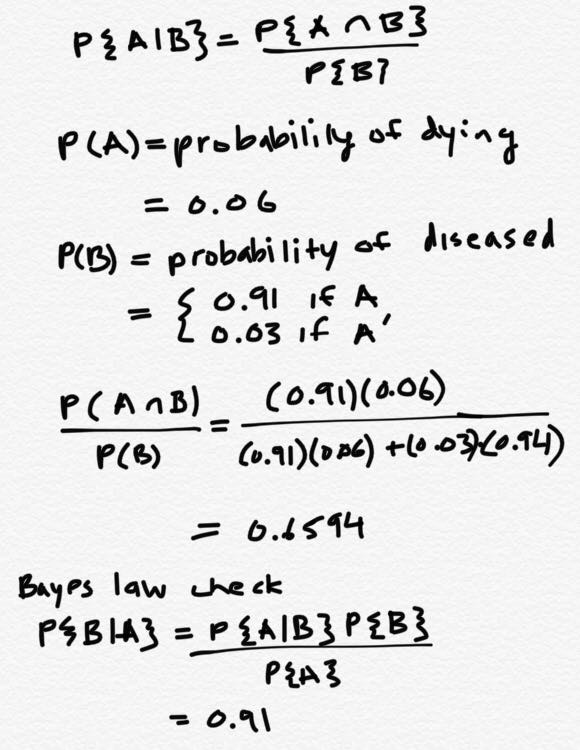 P{A|B} = P{A ∩ B} / P{B}
P(A) = probability of dying
= 0.06
P(B) = probability of diseased
= { 0.91 if A
0.03 if A'
P(A ∩ B) / P(B) = (0.91)(0.06) / (0.91)(0.06) + (0.03)·(0.94)
= 0.6594
Bayes law check
P{B|A} = P{A|B} P{B} / P{A}
= 0.91